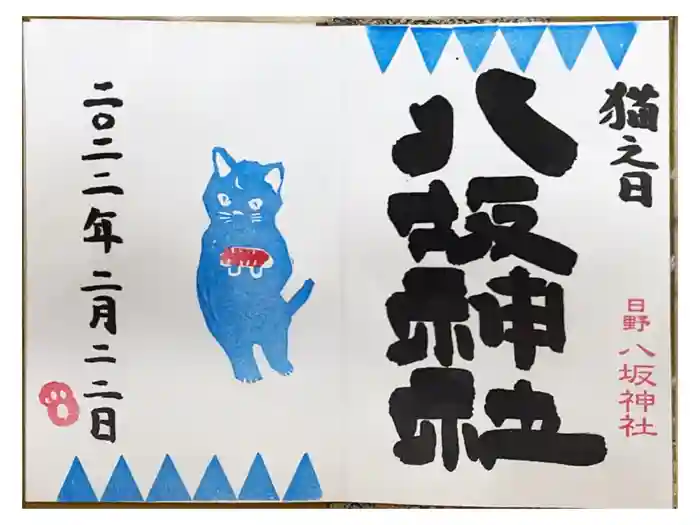 猫之日
八坂神社
日野
八坂神社
二〇二二年二月二二日